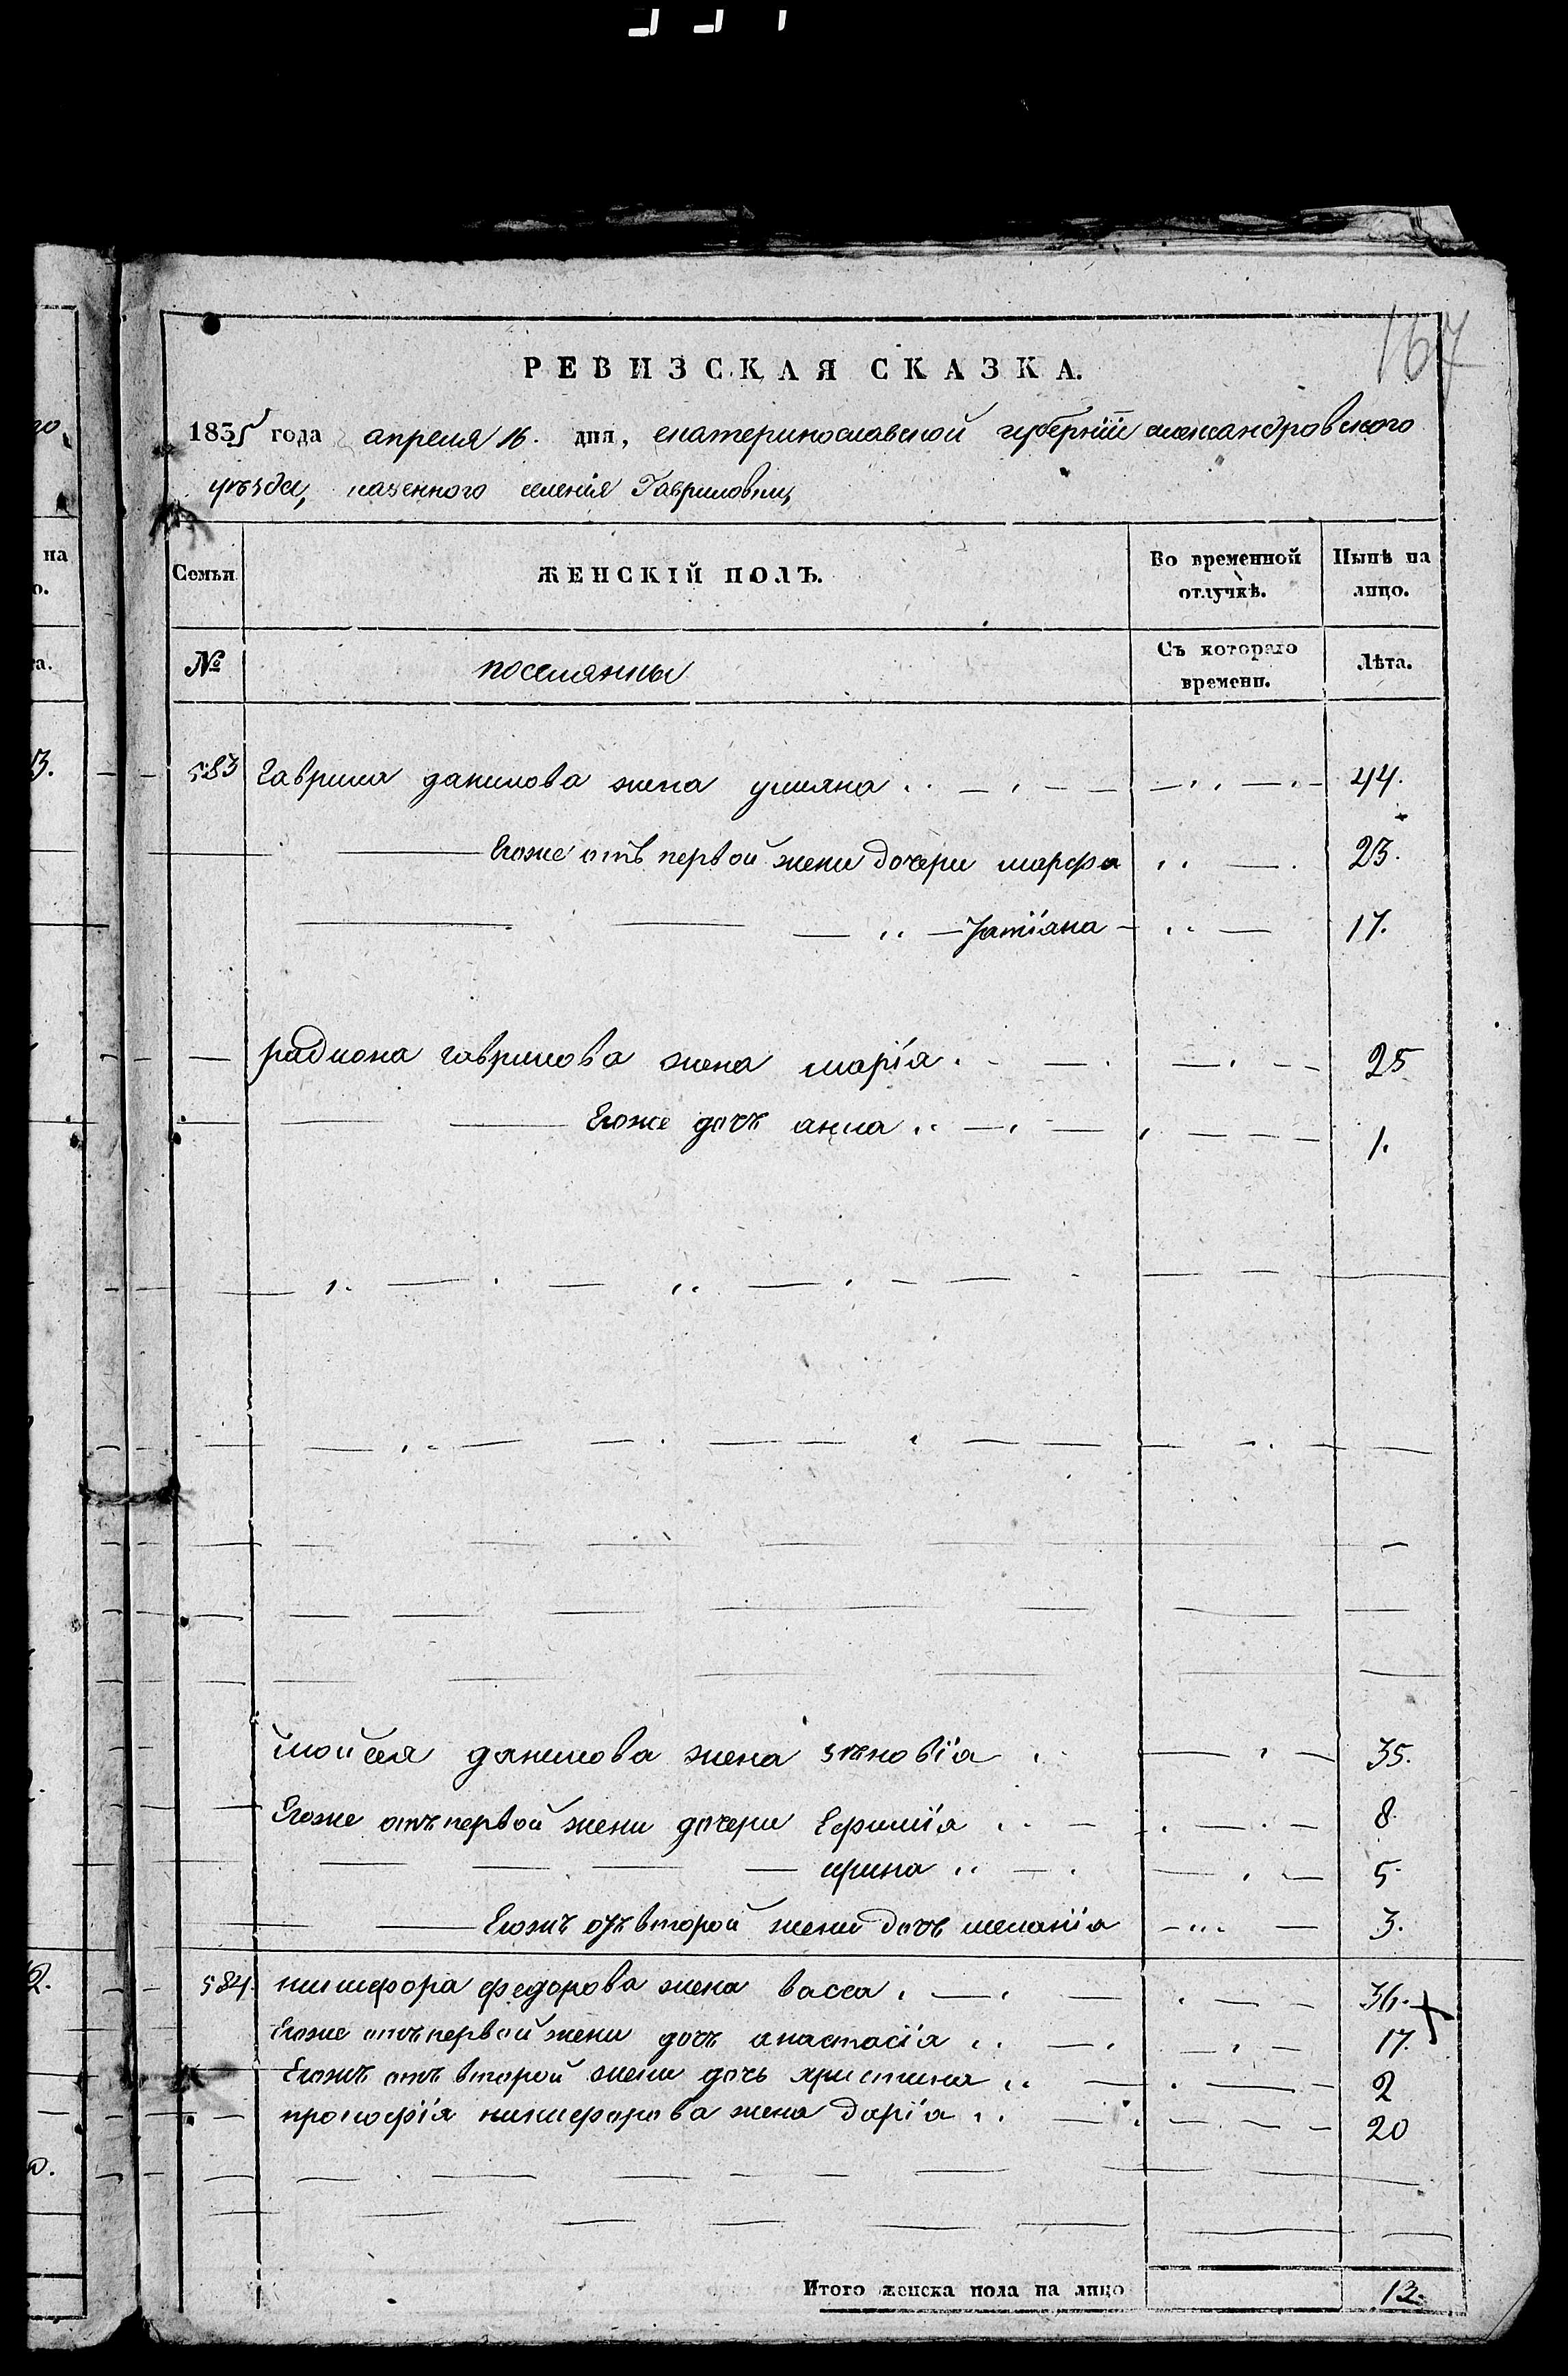 167
РЕВИЗСКАЯ СКАЗКА.
1835 года апреля 16. дня, екатеринославской губернїи александровского
уѣзда, казенного селенїя Гавриловки,
Семьи ЖЕНСКІЙ ПОЛЪ. Во временной отлучкѣ. Нынѣ на лицо.
№ поселянки Съ котораго времени. Лѣта.
583 Гаврила данилова жена улияна 44.
Егоже отъ первой жени дочери марфа 23.
Татїана 17.
радиона гаврилова жена марїя 25
Егоже дочь анна 1.
Мойсея данилова жена зѣновїя 35.
Егоже отъ первой жени дочери Ефимїя 8
ирина 5
Егожъ отъ второй жени дочь меланїя 3.
584. никифора федорова жена васса 36.
Егоже отъ первой жени дочь анастасїя 17.
Егожъ отъ второй жени дочь христина 2
прокофїя никифорова жена дарїя 20
Итого женска пола на лицо 13.
на
о.
та.
3.
2.
0.